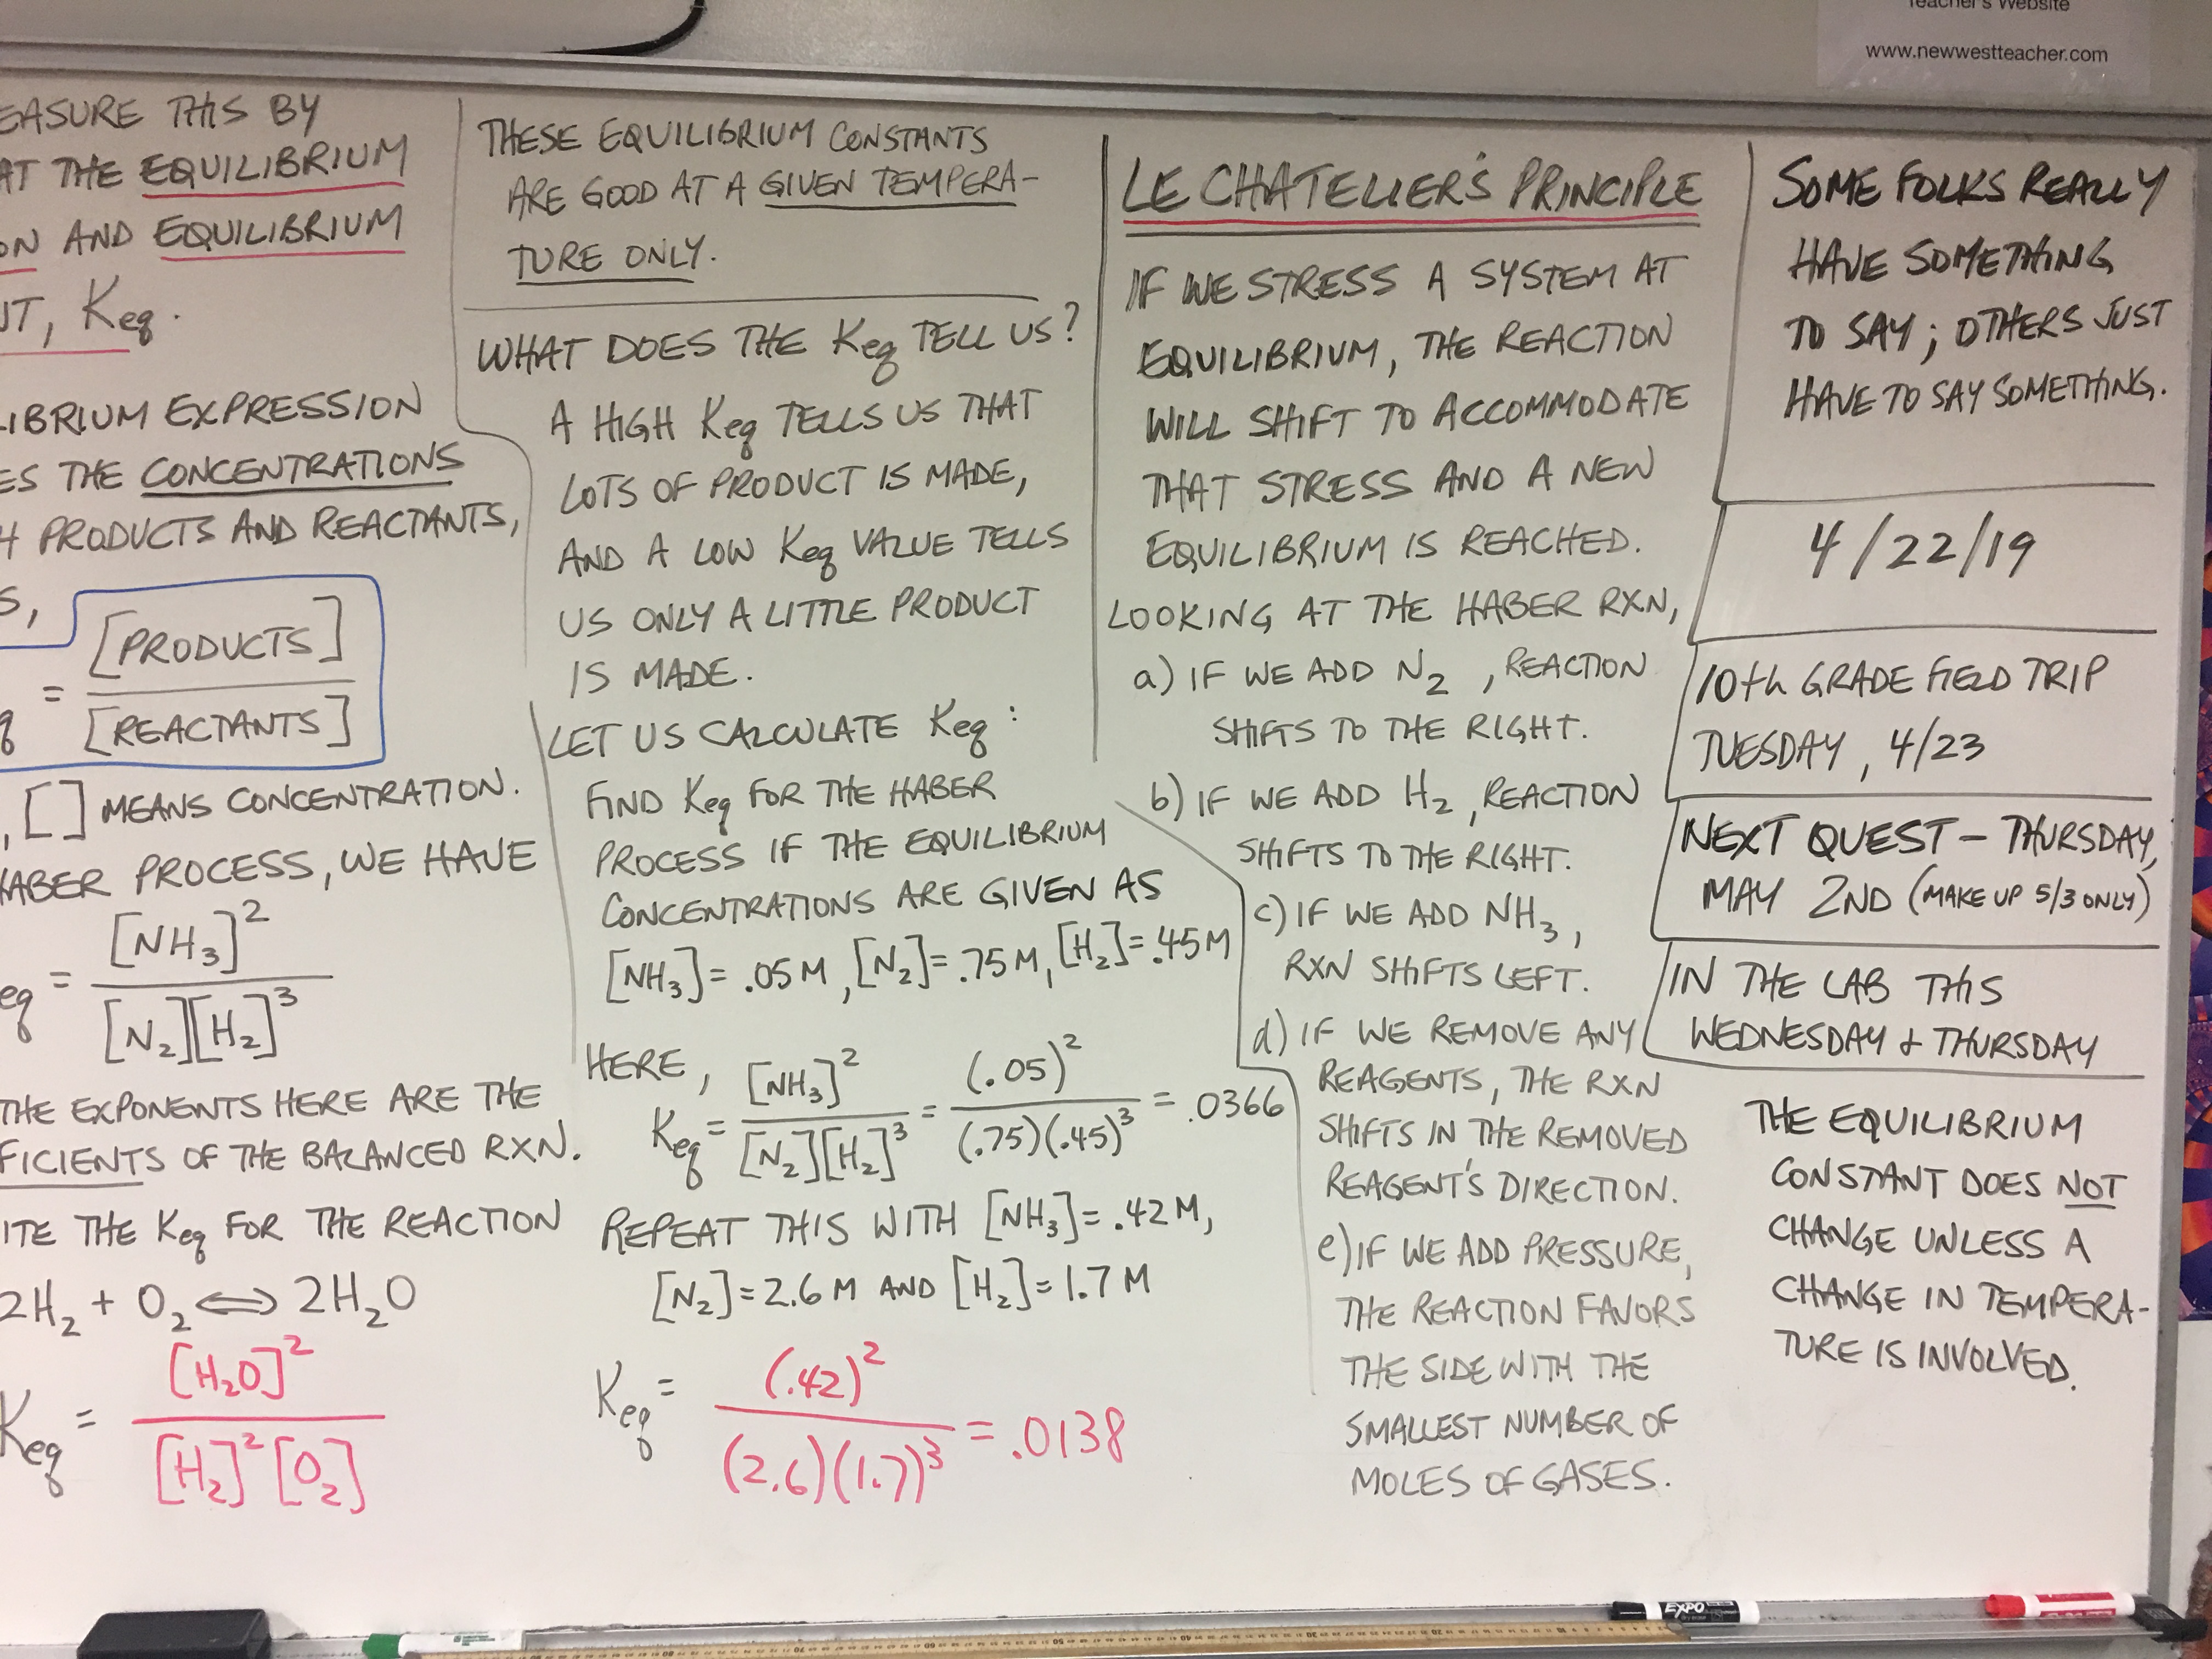 Teacher's Website
www.newwestteacher.com
EASURE THIS BY
AT THE EQUILIBRIUM
ON AND EQUILIBRIUM
NT, Keq.
LIBRIUM EXPRESSION
ES THE CONCENTRATIONS
H PRODUCTS AND REACTANTS,
S,
q = [PRODUCTS] / [REACTANTS]
, [ ] MEANS CONCENTRATION.
HABER PROCESS, WE HAVE
eq = [NH₃]² / [N₂][H₂]³
THE EXPONENTS HERE ARE THE
FICIENTS OF THE BALANCED RXN.
ITE THE Keq FOR THE REACTION
2H₂ + O₂ ⟺ 2H₂O
Keq = [H₂O]² / [H₂]²[O₂]
THESE EQUILIBRIUM CONSTANTS
ARE GOOD AT A GIVEN TEMPERA-
TURE ONLY.
WHAT DOES THE Keq TELL US?
A HIGH Keq TELLS US THAT
LOTS OF PRODUCT IS MADE,
AND A LOW Keq VALUE TELLS
US ONLY A LITTLE PRODUCT
IS MADE.
LET US CALCULATE Keq:
FIND Keq FOR THE HABER
PROCESS IF THE EQUILIBRIUM
CONCENTRATIONS ARE GIVEN AS
[NH₃] = .05M, [N₂] = .75M, [H₂] = .45M
HERE,
Keq = [NH₃]² / [N₂][H₂]³ = (.05)² / (.75)(.45)³ = .0366
REPEAT THIS WITH [NH₃] = .42M,
[N₂] = 2.6M AND [H₂] = 1.7M
Keq = (.42)² / (2.6)(1.7)³ = .0138
LE CHATELIER'S PRINCIPLE
IF WE STRESS A SYSTEM AT
EQUILIBRIUM, THE REACTION
WILL SHIFT TO ACCOMMODATE
THAT STRESS AND A NEW
EQUILIBRIUM IS REACHED.
LOOKING AT THE HABER RXN,
a) IF WE ADD N₂, REACTION
SHIFTS TO THE RIGHT.
b) IF WE ADD H₂, REACTION
SHIFTS TO THE RIGHT.
c) IF WE ADD NH₃,
RXN SHIFTS LEFT.
d) IF WE REMOVE ANY
REAGENTS, THE RXN
SHIFTS IN THE REMOVED
REAGENT'S DIRECTION.
e) IF WE ADD PRESSURE,
THE REACTION FAVORS
THE SIDE WITH THE
SMALLEST NUMBER OF
MOLES OF GASES.
SOME FOLKS REALLY
HAVE SOMETHING
TO SAY; OTHERS JUST
HAVE TO SAY SOMETHING.
4/22/19
10th GRADE FIELD TRIP
TUESDAY, 4/23
NEXT QUEST - THURSDAY,
MAY 2ND (MAKE UP 5/3 ONLY)
IN THE LAB THIS
WEDNESDAY & THURSDAY
THE EQUILIBRIUM
CONSTANT DOES NOT
CHANGE UNLESS A
CHANGE IN TEMPERA-
TURE IS INVOLVED.
EXPO